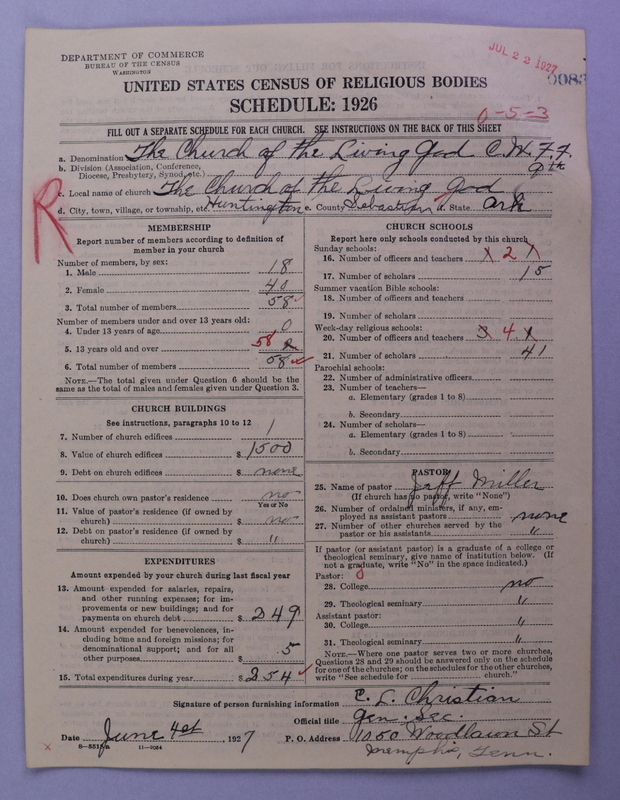 DEPARTMENT OF COMMERCE
BUREAU OF THE CENSUS
WASHINGTON
JUL 22 1927
0083
UNITED STATES CENSUS OF RELIGIOUS BODIES
SCHEDULE: 1926
0-5-3
FILL OUT A SEPARATE SCHEDULE FOR EACH CHURCH. SEE INSTRUCTIONS ON THE BACK OF THIS SHEET
a. Denomination The Church of the Living God C.W.F.F.
b. Division (Association, Conference, Diocese, Presbytery, Synod, etc.) 9th
c. Local name of church The Church of the Living God
d. City, town, village, or township, etc. Huntington e. County Sebastian d. State Ark
R
MEMBERSHIP
Report number of members according to definition of
member in your church
Number of members, by sex:
1. Male 18
2. Female 40
3. Total number of members 58
Number of members under and over 13 years old:
4. Under 13 years of age 0
5. 13 years old and over 58
6. Total number of members 58
NOTE.—The total given under Question 6 should be the
same as the total of males and females given under Question 3.
CHURCH BUILDINGS
See instructions, paragraphs 10 to 12
7. Number of church edifices 1
8. Value of church edifices $ 1500
9. Debt on church edifices $ none
10. Does church own pastor's residence no
Yes or No
11. Value of pastor's residence (if owned by
church) $ no
12. Debt on pastor's residence (if owned by
church) $ "
EXPENDITURES
Amount expended by your church during last fiscal year
13. Amount expended for salaries, repairs,
and other running expenses; for im-
provements or new buildings; and for
payments on church debt $ 249
14. Amount expended for benevolences, in-
cluding home and foreign missions; for
denominational support; and for all
other purposes $ 5
15. Total expenditures during year $ 254
CHURCH SCHOOLS
Report here only schools conducted by this church
Sunday schools:
16. Number of officers and teachers 1 2 1
17. Number of scholars 15
Summer vacation Bible schools:
18. Number of officers and teachers
19. Number of scholars
Week-day religious schools:
20. Number of officers and teachers 3 4 1
21. Number of scholars 41
Parochial schools:
22. Number of administrative officers
23. Number of teachers—
a. Elementary (grades 1 to 8)
b. Secondary
24. Number of scholars—
a. Elementary (grades 1 to 8)
b. Secondary
PASTOR
25. Name of pastor Jaff Miller
(If church has no pastor, write "None")
26. Number of ordained ministers, if any, em-
ployed as assistant pastors none
27. Number of other churches served by the
pastor or his assistants "
If pastor (or assistant pastor) is a graduate of a college or
theological seminary, give name of institution below. (If
not a graduate, write "No" in the space indicated.)
Pastor: 0
28. College no
29. Theological seminary "
Assistant pastor:
30. College "
31. Theological seminary "
NOTE.—Where one pastor serves two or more churches,
Questions 28 and 29 should be answered only on the schedule
for one of the churches; on the schedules for the other churches,
write "See schedule for church."
Signature of person furnishing information C. L. Christian
Official title Gen. Sec.
Date June 4st, 1927 P. O. Address 1050 Woodlawn St
8-5515 a 11-9034
Memphis, Tenn.